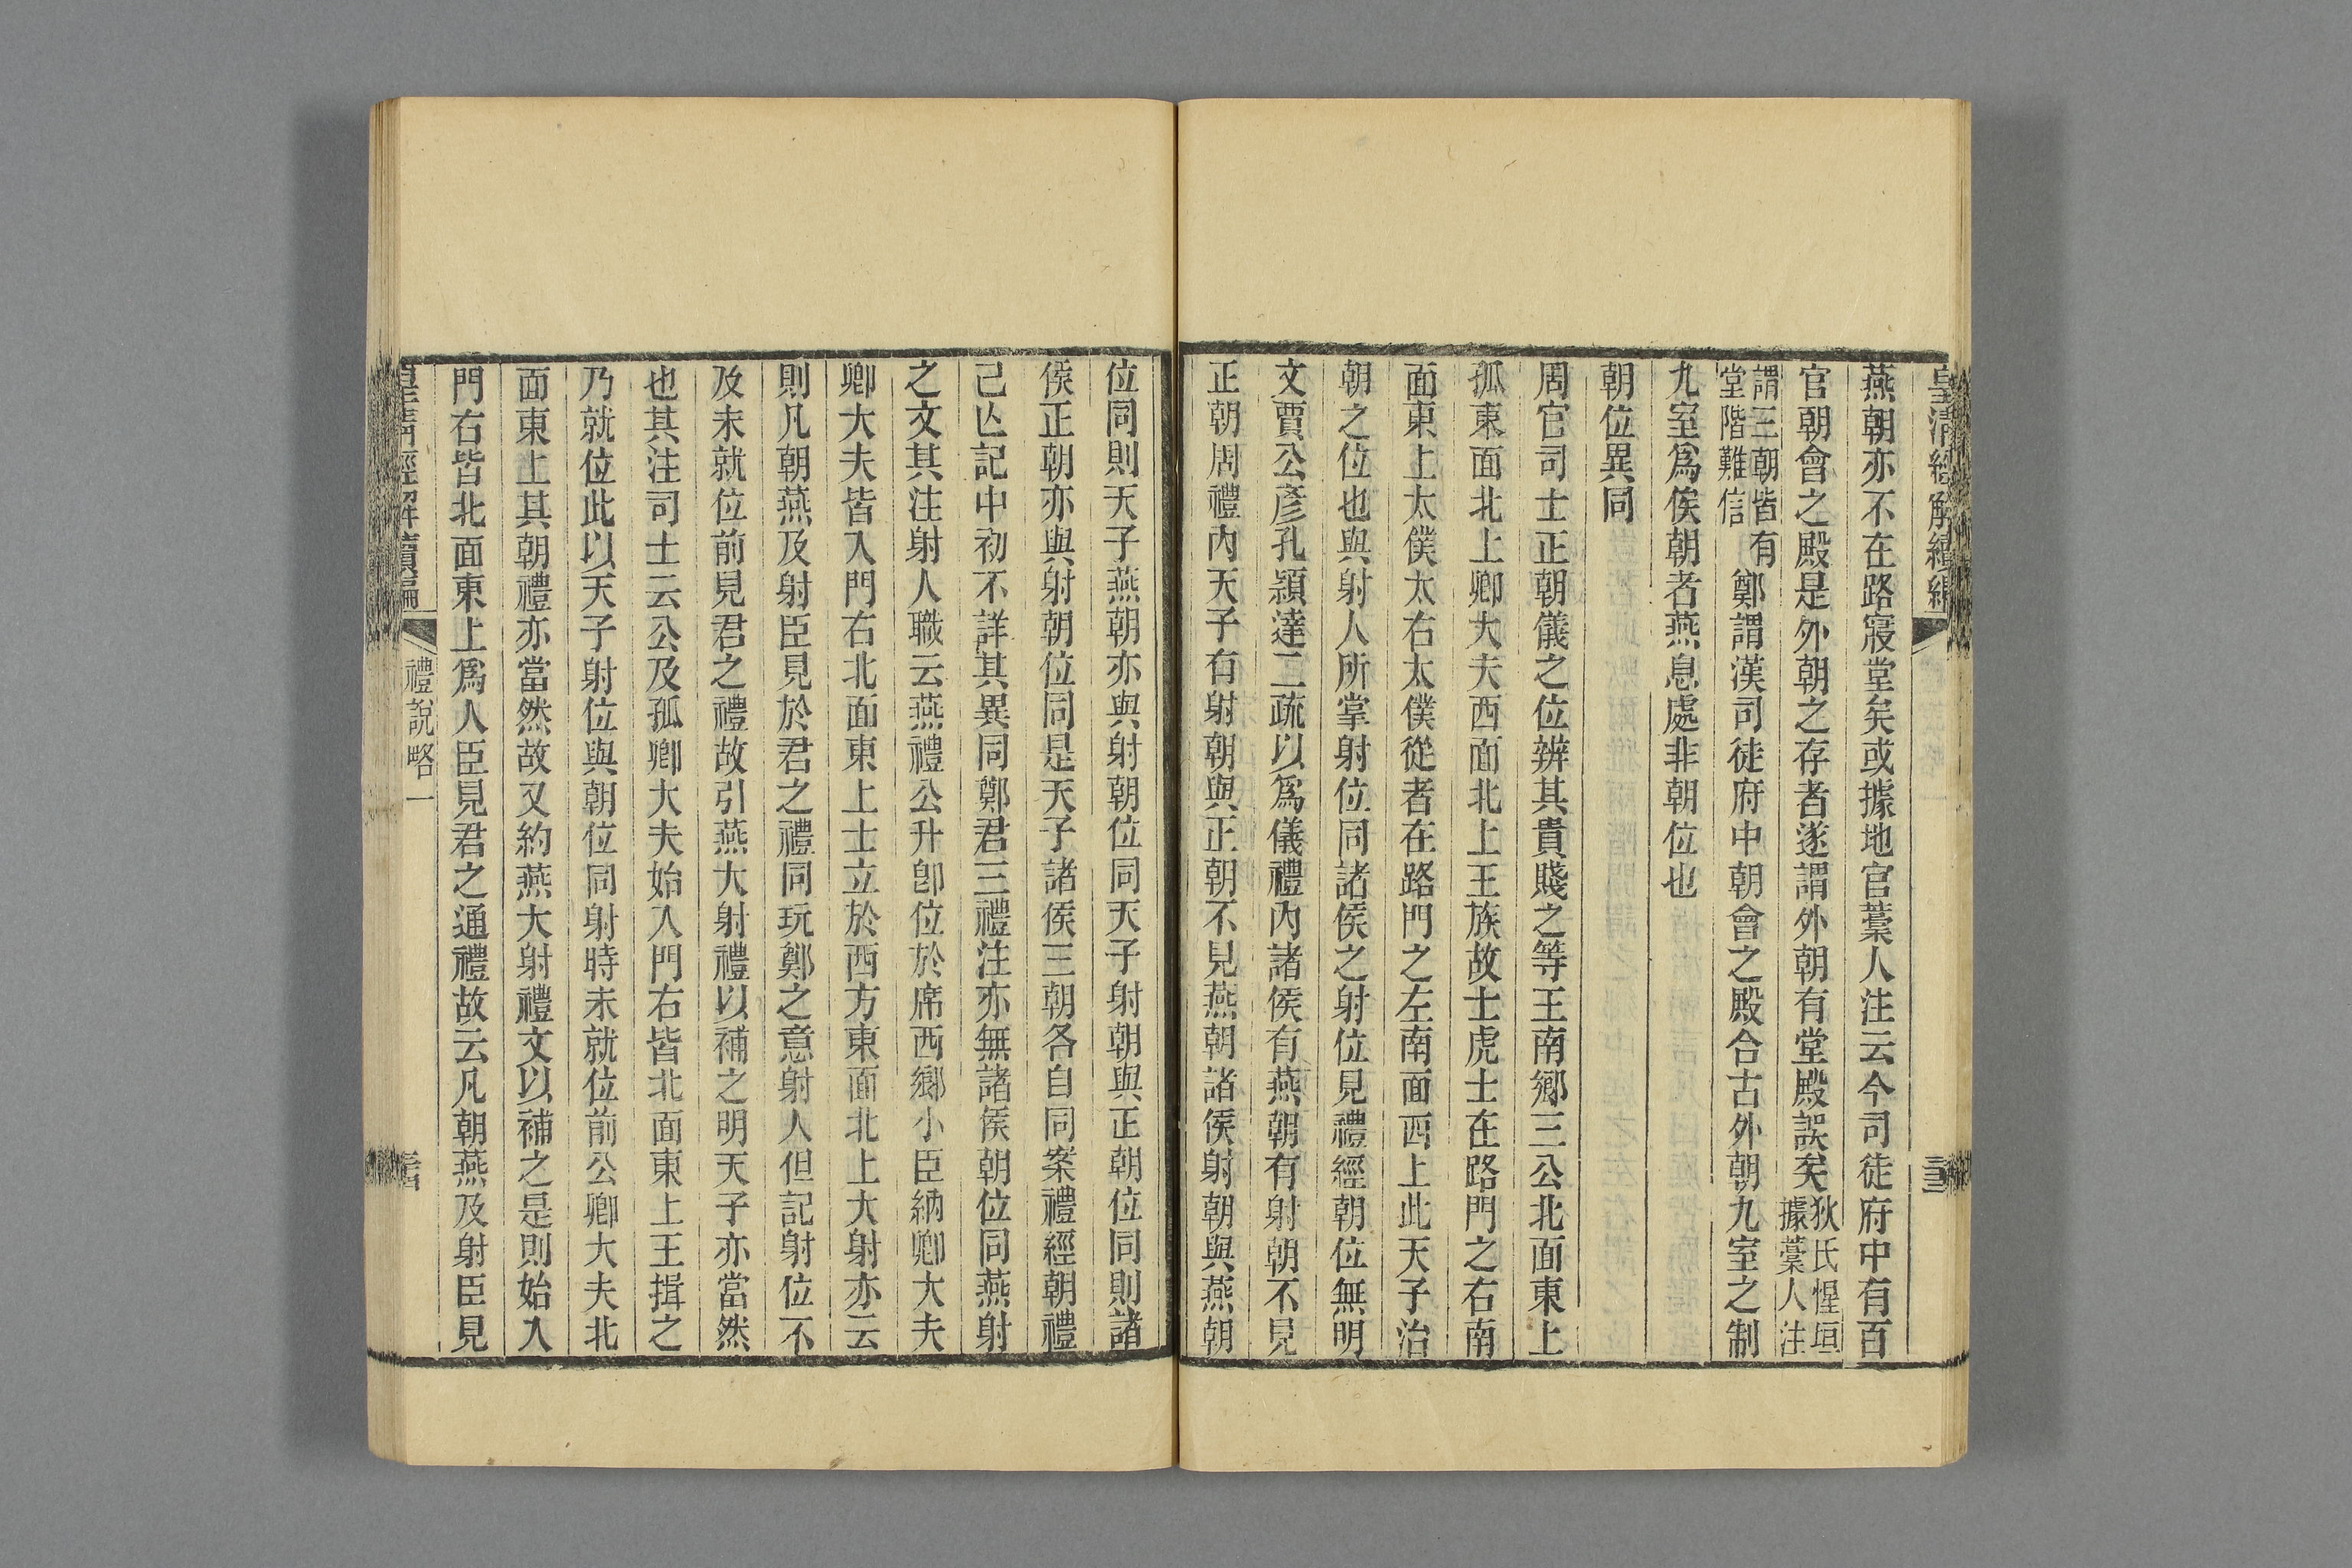 皇清經解續編
燕朝亦不在路寢堂矣或據地官藁人注云今司徒府中有百
官朝會之殿是外朝之存者遂謂外朝有堂殿誤矣狄氏惺垣據藁人注
謂三朝皆有堂階難信鄭謂漢司徒府中朝會之殿合古外朝九室之制
九室爲俟朝者燕息處非朝位也
朝位異同
周官司士正朝儀之位辨其貴賤之等王南鄉三公北面東上
孤東面北上卿大夫西面北上王族故士虎士在路門之右南
面東上太僕太右太僕從者在路門之左南面西上此天子治
朝之位也與射人所掌射位同諸侯之射位見禮經朝位無明
文賈公彥孔穎達二疏以爲儀禮內諸侯有燕朝有射朝不見
正朝周禮內天子有射朝與正朝不見燕朝諸侯射朝與燕朝
位同則天子燕朝亦與射朝位同天子射朝與正朝位同則諸
侯正朝亦與射朝位同是天子諸侯三朝各自同案禮經朝禮
已亾記中初不詳其異同鄭君三禮注亦無諸侯朝位同燕射
之文其注射人職云燕禮公升卽位於席西鄉小臣納卿大夫
卿大夫皆入門右北面東上士立於西方東面北上大射亦云
則凡朝燕及射臣見於君之禮同玩鄭之意射人但記射位不
及未就位前見君之禮故引燕大射禮以補之明天子亦當然
也其注司士云公及孤卿大夫始入門右皆北面東上王揖之
乃就位此以天子射位與朝位同射時未就位前公卿大夫北
面東上其朝禮亦當然故又約燕大射禮文以補之是則始入
門右皆北面東上爲人臣見君之通禮故云凡朝燕及射臣見
皇清經解續編 禮說略一